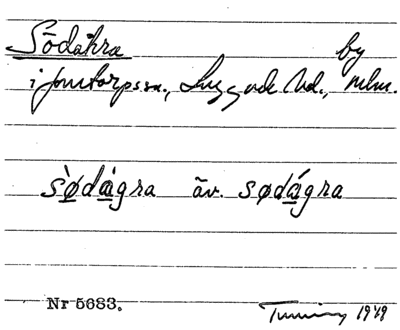 Södåkra by
i Jonstorps sn., Luggude hd., Mlm.
sø̀dàgra äv. sødágra
Nr 5683.
1919